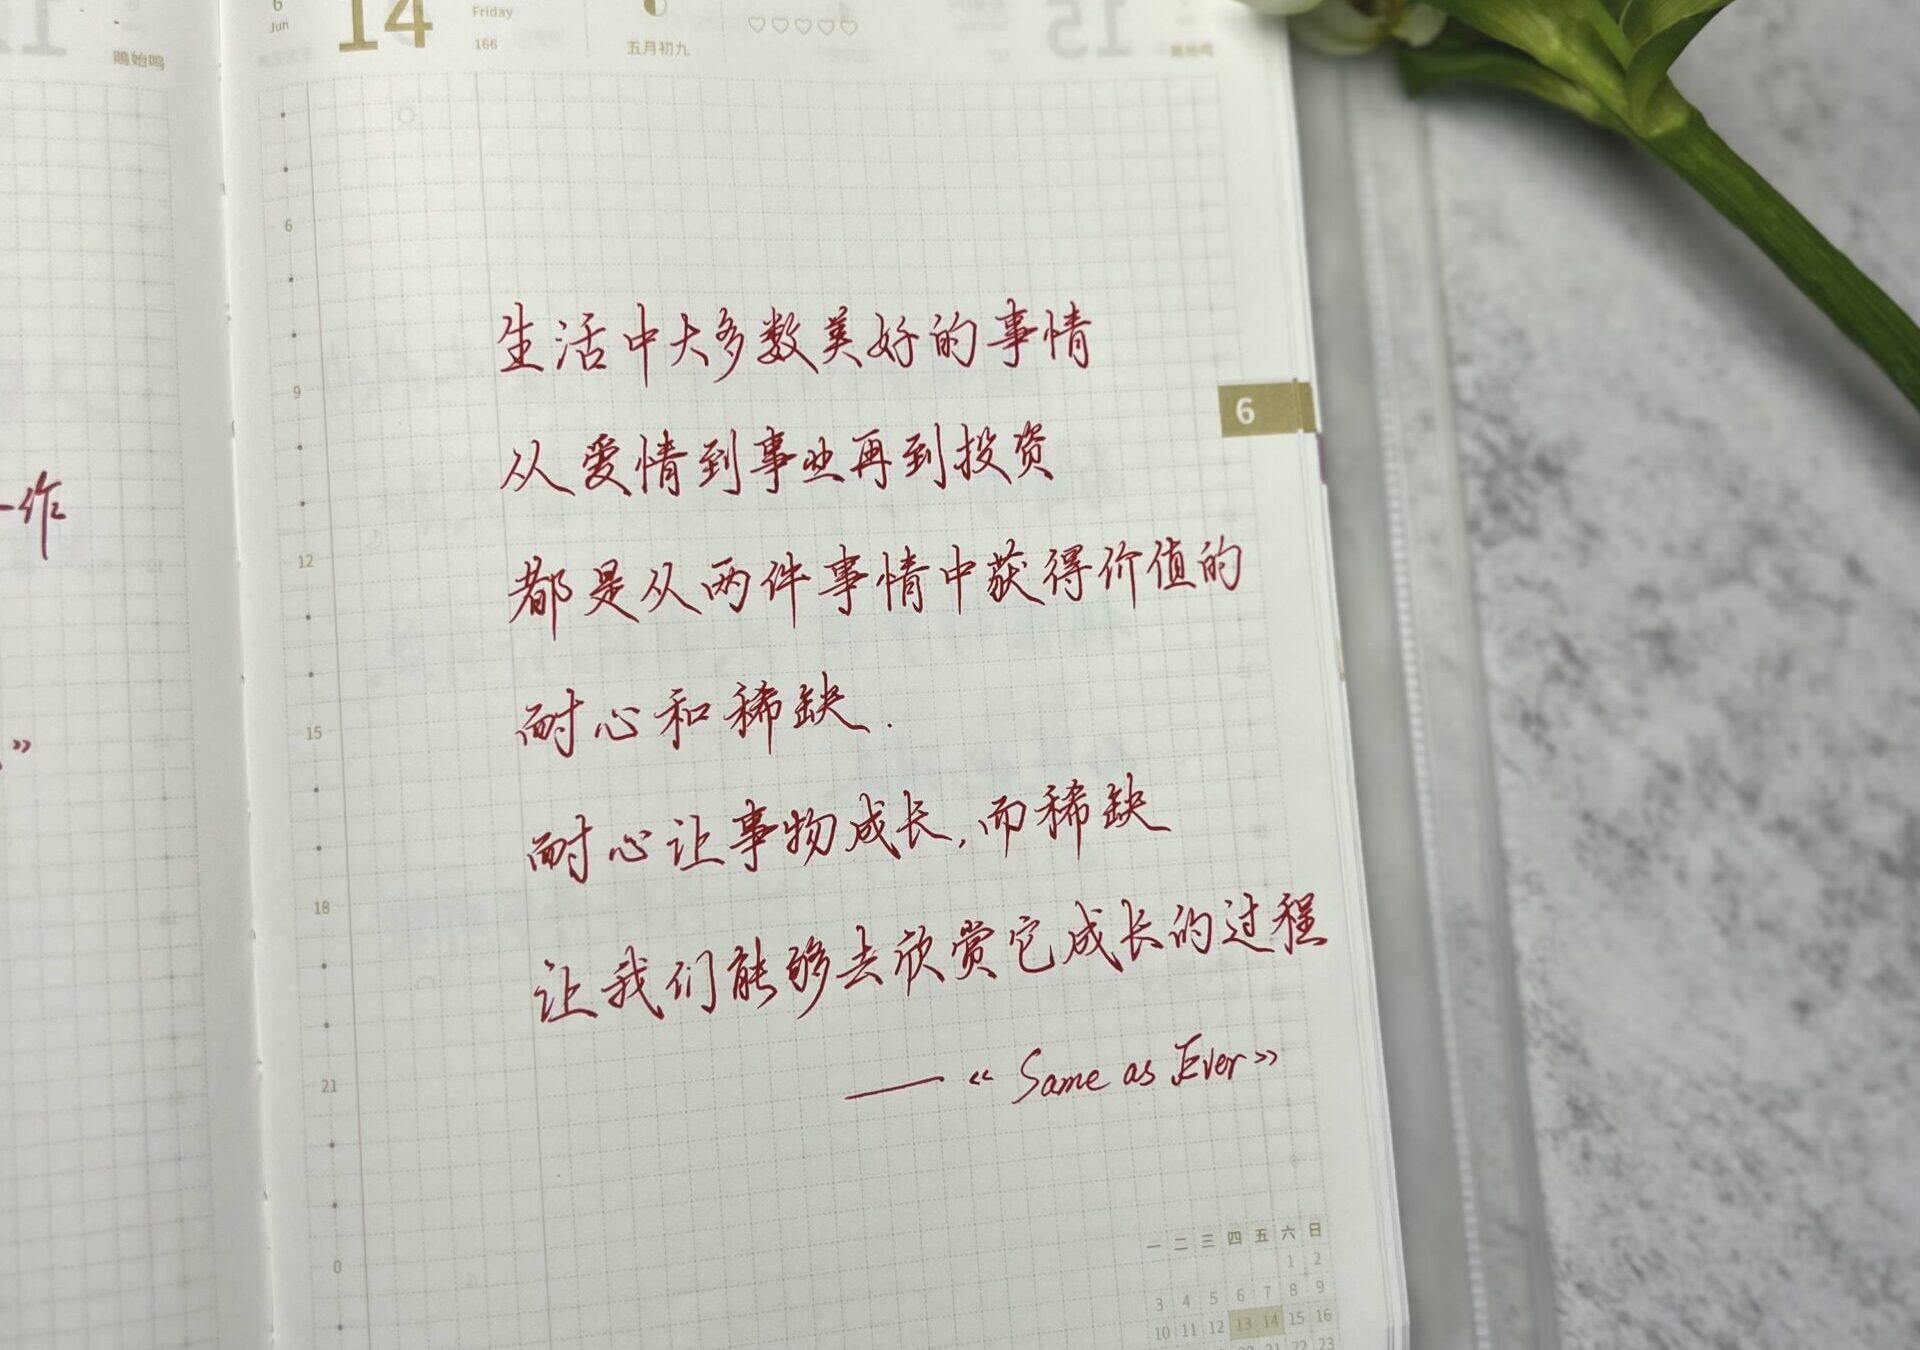 6
Jun
14
Friday
166
五月初九
15
鵙始鸣
鵙始鸣
6
9
12
15
18
21
0
6
作
»
生活中大多数美好的事情
从爱情到事业再到投资
都是从两件事情中获得价值的
耐心和稀缺.
耐心让事物成长,而稀缺
让我们能够去欣赏它成长的过程
——《Same as Ever》
一 二 三 四 五 六 日
1 2
3 4 5 6 7 8 9
10 11 12 13 14 15 16
20 21 22 23